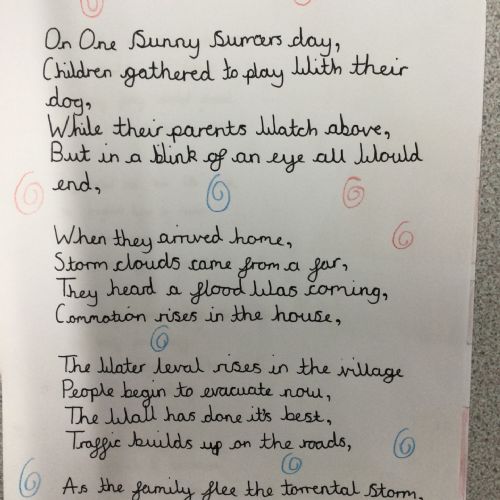 On One Sunny Sumers day,
Children gathered to play With their
dog,
While their parents Watch above,
But in a blink of an eye all Would
end,
When they arrived home,
Storm clouds came from a far,
They heard a flood Was coming,
Commotion rises in the house,
The Water leval rises in the village
People begin to evacuate now,
The Wall has done it's best,
Traffic builds up on the roads,
As the family flee the torrental storm,